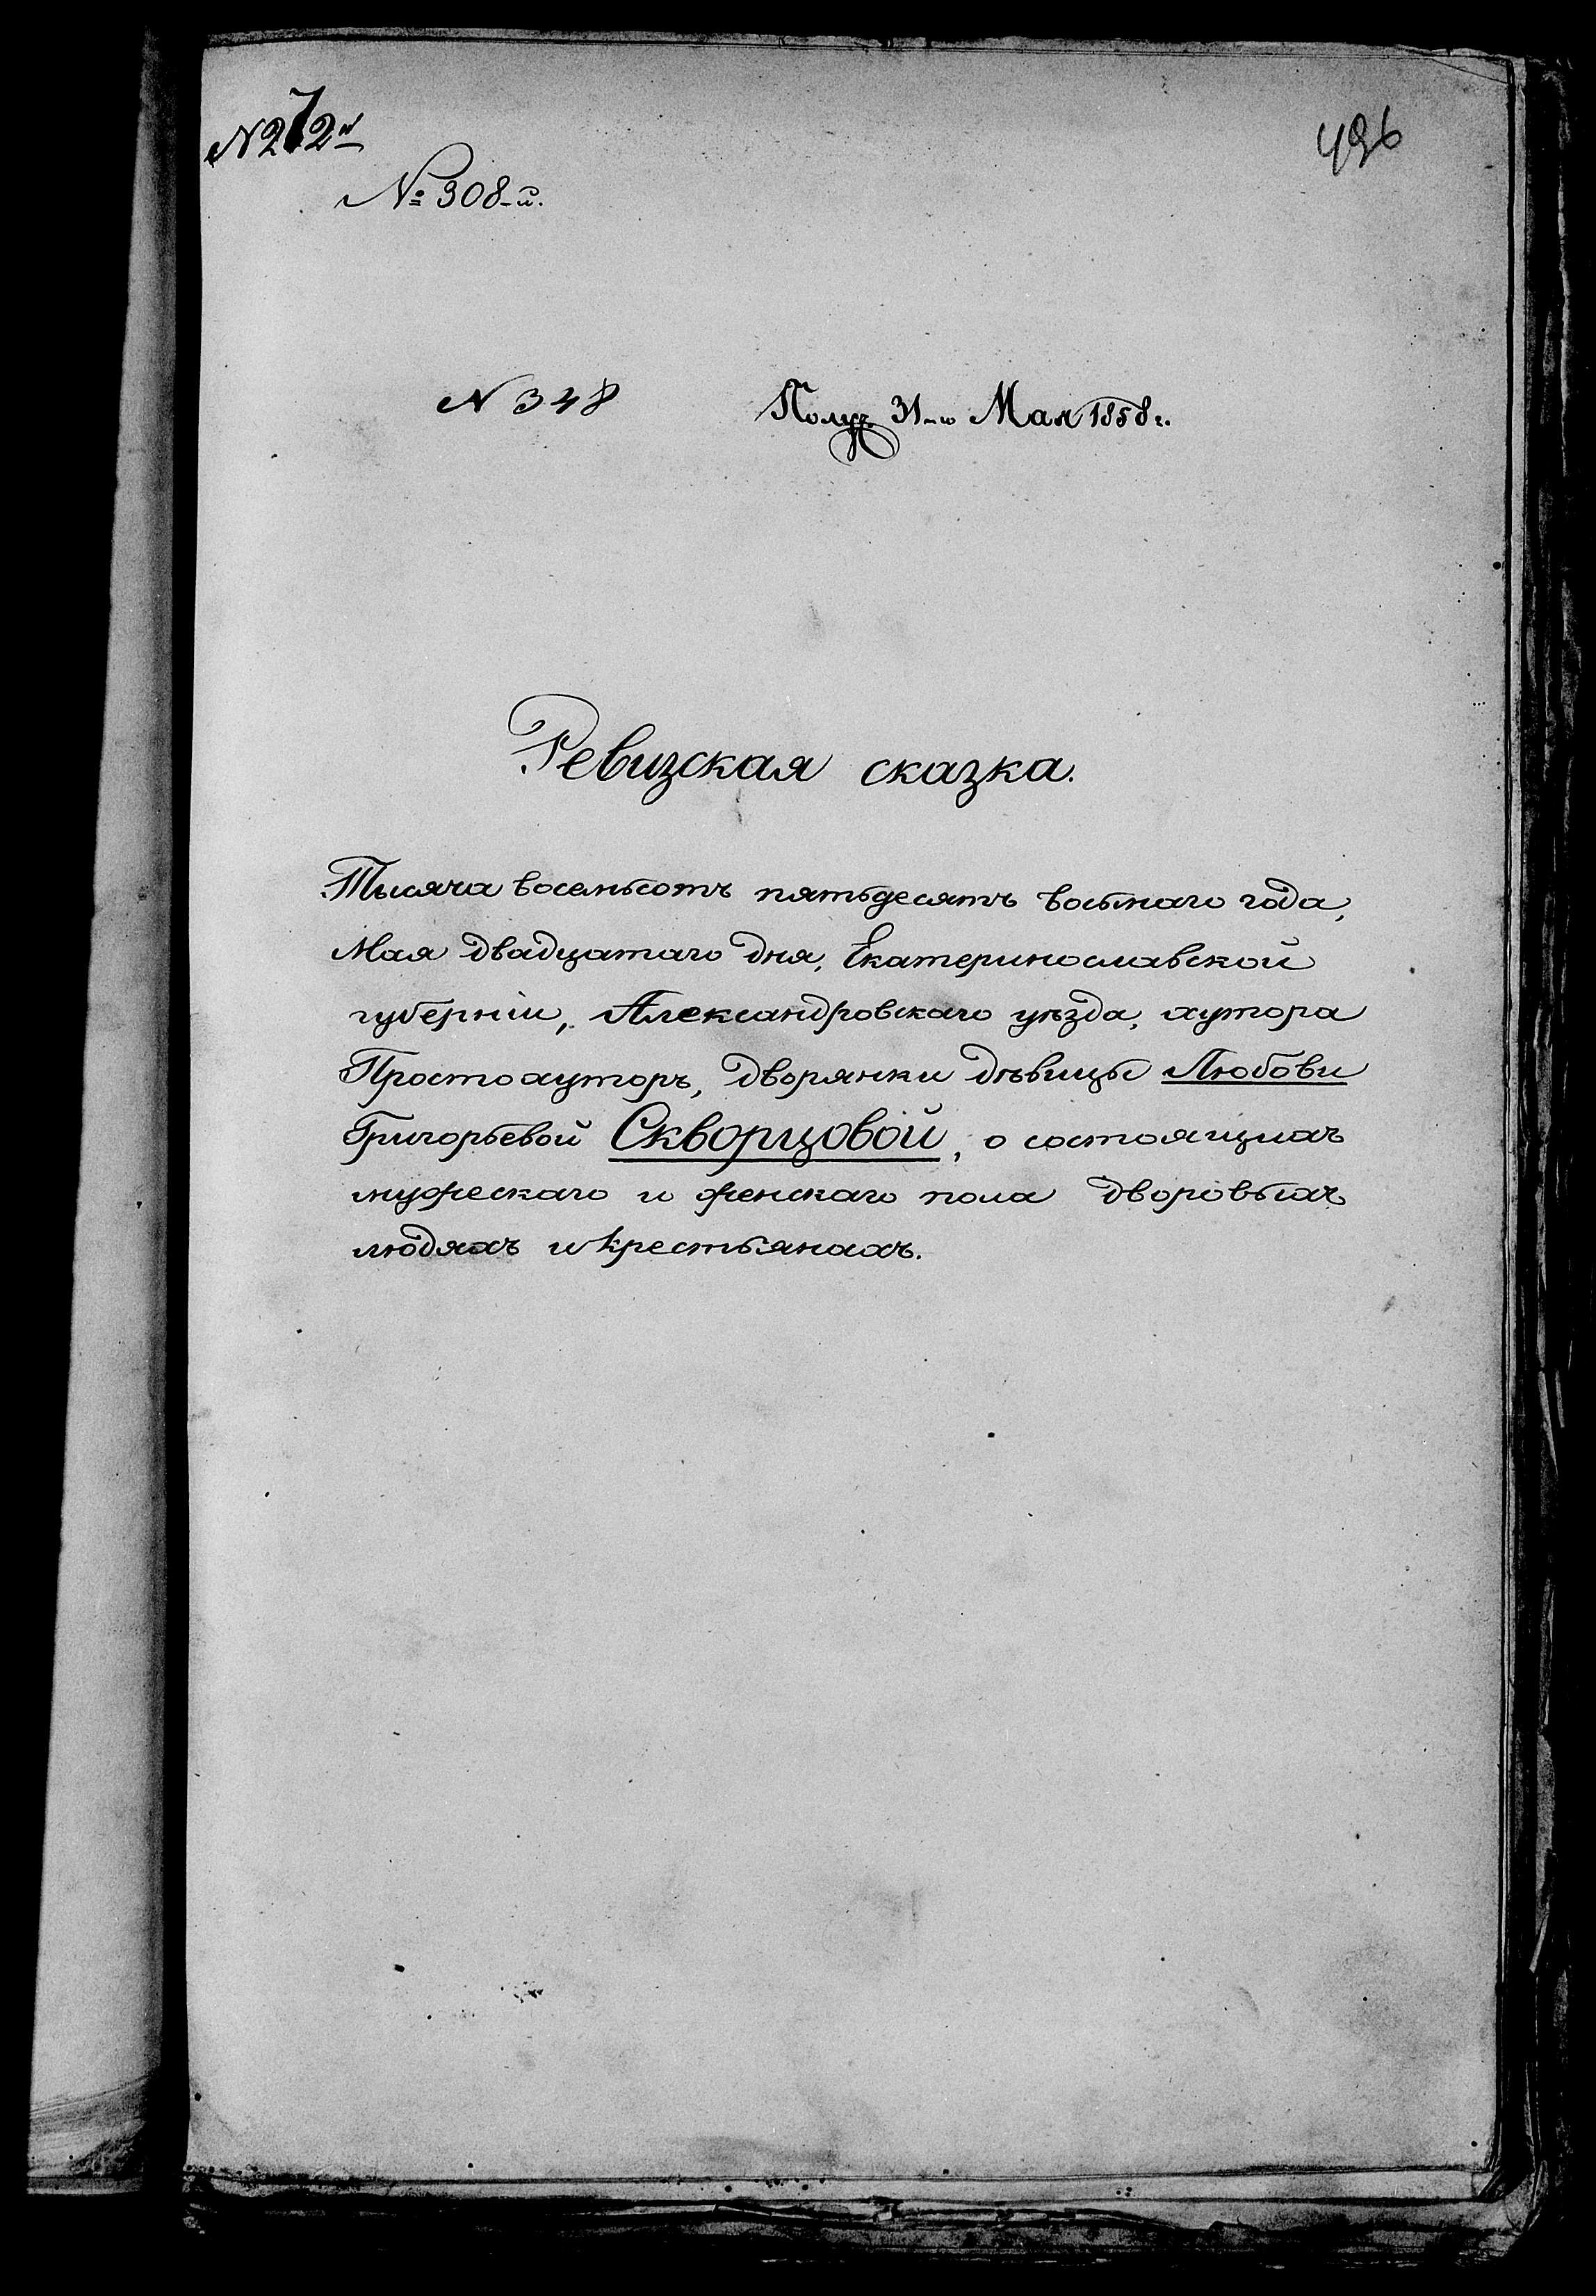 N 272й
496
№ 308-й.
N 348
Получ. 31-го Мая 1858 г.
Ревизская сказка.
Тысяча восемьсотъ пятьдесятъ восьмаго года,
Мая двадцатаго дня, Екатеринославской
губерніи, Александровскаго уѣзда, хутора
Простохуторъ, дворянки дѣвицы Любови
Григорьевой Скворцовой, о состоящихъ
мужескаго и женскаго пола дворовыхъ
людяхъ и крестьянахъ.